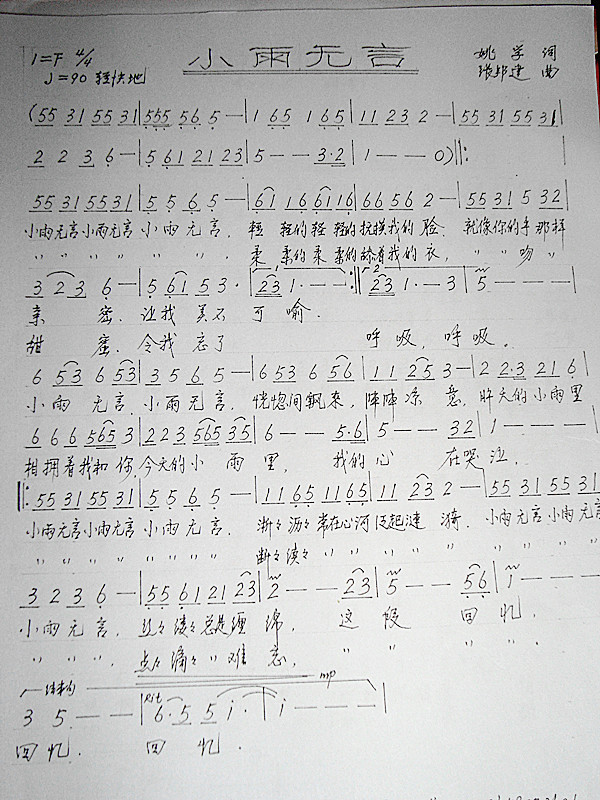 小雨无言
1=F 4/4
♩=90 轻快地
姚学 词
张邦建 曲
(55 31 55 31|555 56 5 —|1 65 1 65|11 23 2 —|55 31 55 31|
2 2 3 6 —|5 61 21 23|5 — — 3·2|1 — — 0)‖:
55 31 55 31|5 5 6 5 —|61 16 61 16|66 56 2 —|55 31 5 32|
小雨无言小雨无言 小雨无言, 轻轻的轻轻的抚摸我的脸, 就像你的手那样
〃 〃 〃 〃 〃 〃, 柔柔的柔柔的 我的衣, 〃 〃 吻 〃
3 2 3 6 —|5 61 53·|1. 23 1·—:‖2. 23 1·— 3|5 — — —|
亲 密. 让我 美不可喻.
甜 蜜. 令我 忘了 呼吸, 呼吸.
6 53 6 53|3 5 6 5 —|6 53 6 56|11 25 3 —|2 2·3 21 6|
小雨无言, 小雨无言, 恍惚间飘来, 阵阵凉意, 昨天的小雨里
6 6 6 5 65 3|2 2 3 565 35|6 — — 5·6|5 — — 32|1 — — —|
相拥着我和你, 今天的小雨里, 我的心 在哭泣.
‖:55 31 55 31|5 5 6 5 —|11 65 11 65|11 23 2 —|55 31 55 31|
小雨无言小雨无言 小雨无言, 淅淅沥沥常在心河泛起涟漪, 小雨无言小雨无言
〃 〃 〃 〃 〃 〃 断断续续 〃 〃 〃 〃 〃 〃
3 2 3 6 —|55 61 21 23|2 — — 23|5 — — 56|i — — —|
小雨无言, 丝丝缕缕总是缠绵, 这段 回忆,
〃 〃, 点点滴滴 〃 难忘, 〃 〃 〃 〃.
结束句
mp
3 5 — —|Rit 6·5 5 i·|i — — —|
回忆. 回忆.